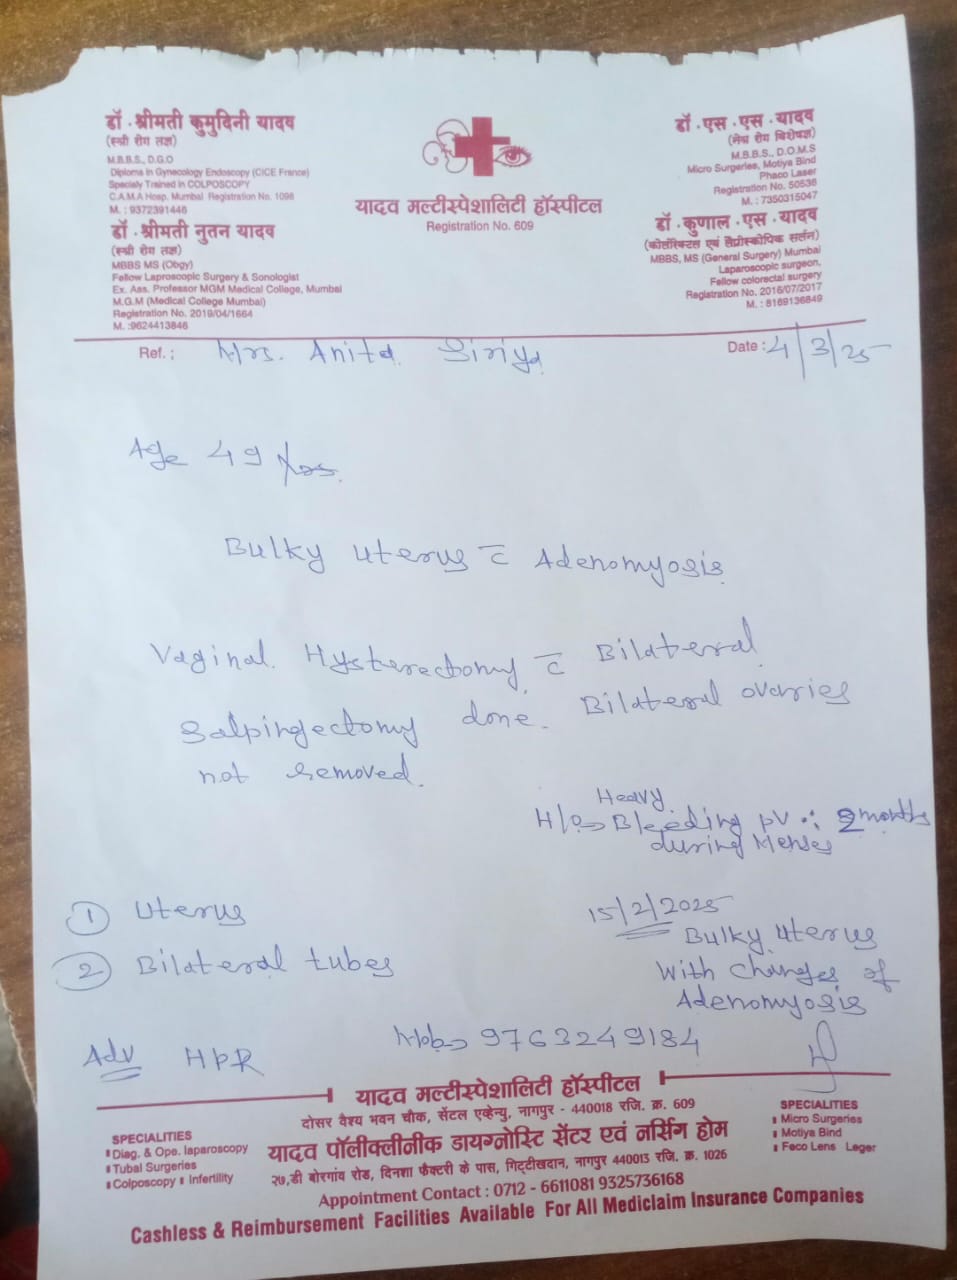 डॉ. श्रीमती कुमुदिनी यादव
(स्त्री रोग तज्ञ)
M.B.B.S., D.G.O
Diploma in Gynecology Endoscopy (CICE France)
Specialy Trained in COLPOSCOPY
C.A.M.A Hosp. Mumbai Registration No. 1098
M. : 9372391446
डॉ. श्रीमती नुतन यादव
(स्त्री रोग तज्ञ)
MBBS MS (Obgy)
Fellow Laproscopic Surgery & Sonologist
Ex. Ass. Professor MGM Medical College, Mumbai
M.G.M (Medical College Mumbai)
Registration No. 2019/04/1664
M. :9624413846
यादव मल्टीस्पेशालिटी हॉस्पीटल
Registration No. 609
डॉ. एस. एस. यादव
(नेत्र रोग विशेषज्ञ)
M.B.B.S., D.O.M.S
Micro Surgeries, Motiya Bind
Phaco Laser
Registration No. 50536
M. : 7350315047
डॉ. कुणाल. एस. यादव
(कोलोरेक्टल एवं लेप्रोस्कोपिक सर्जन)
MBBS, MS (General Surgery) Mumbai
Laparoscopic surgeon,
Fellow colorectal surgery
Registration No. 2016/07/2017
M. : 8169136849
Ref. : Mrs. Anita Siriya
Date : 4/3/25
Age 49 Yrs.
Bulky Uterus c̄ Adenomyosis
Vaginal Hysterectomy c̄ Bilateral
Salpingectomy done. Bilateral ovaries
not removed.
Heavy
H/o Bleeding pv ∴ 2 months
during Menses
① Uterus
② Bilateral tubes
15/2/2025
Bulky Uterus
with changes of
Adenomyosis
Adv HPR
Mob 9763249184
यादव मल्टीस्पेशालिटी हॉस्पीटल
दोसर वैश्य भवन चौक, सेंटल एव्हेन्यु, नागपुर - 440018 रजि. क्र. 609
यादव पॉलीक्लीनीक डायग्नोस्टि सेंटर एवं नर्सिंग होम
२७,डी बोरगांव रोड, दिनशा फैक्टरी के पास, गिट्टीखदान, नागपुर 440013 रजि. क्र. 1026
Appointment Contact : 0712 - 6611081 9325736168
SPECIALITIES
Diag. & Ope. laparoscopy
Tubal Surgeries
Colposcopy Infertility
SPECIALITIES
Micro Surgeries
Motiya Bind
Feco Lens Leger
Cashless & Reimbursement Facilities Available For All Mediclaim Insurance Companies